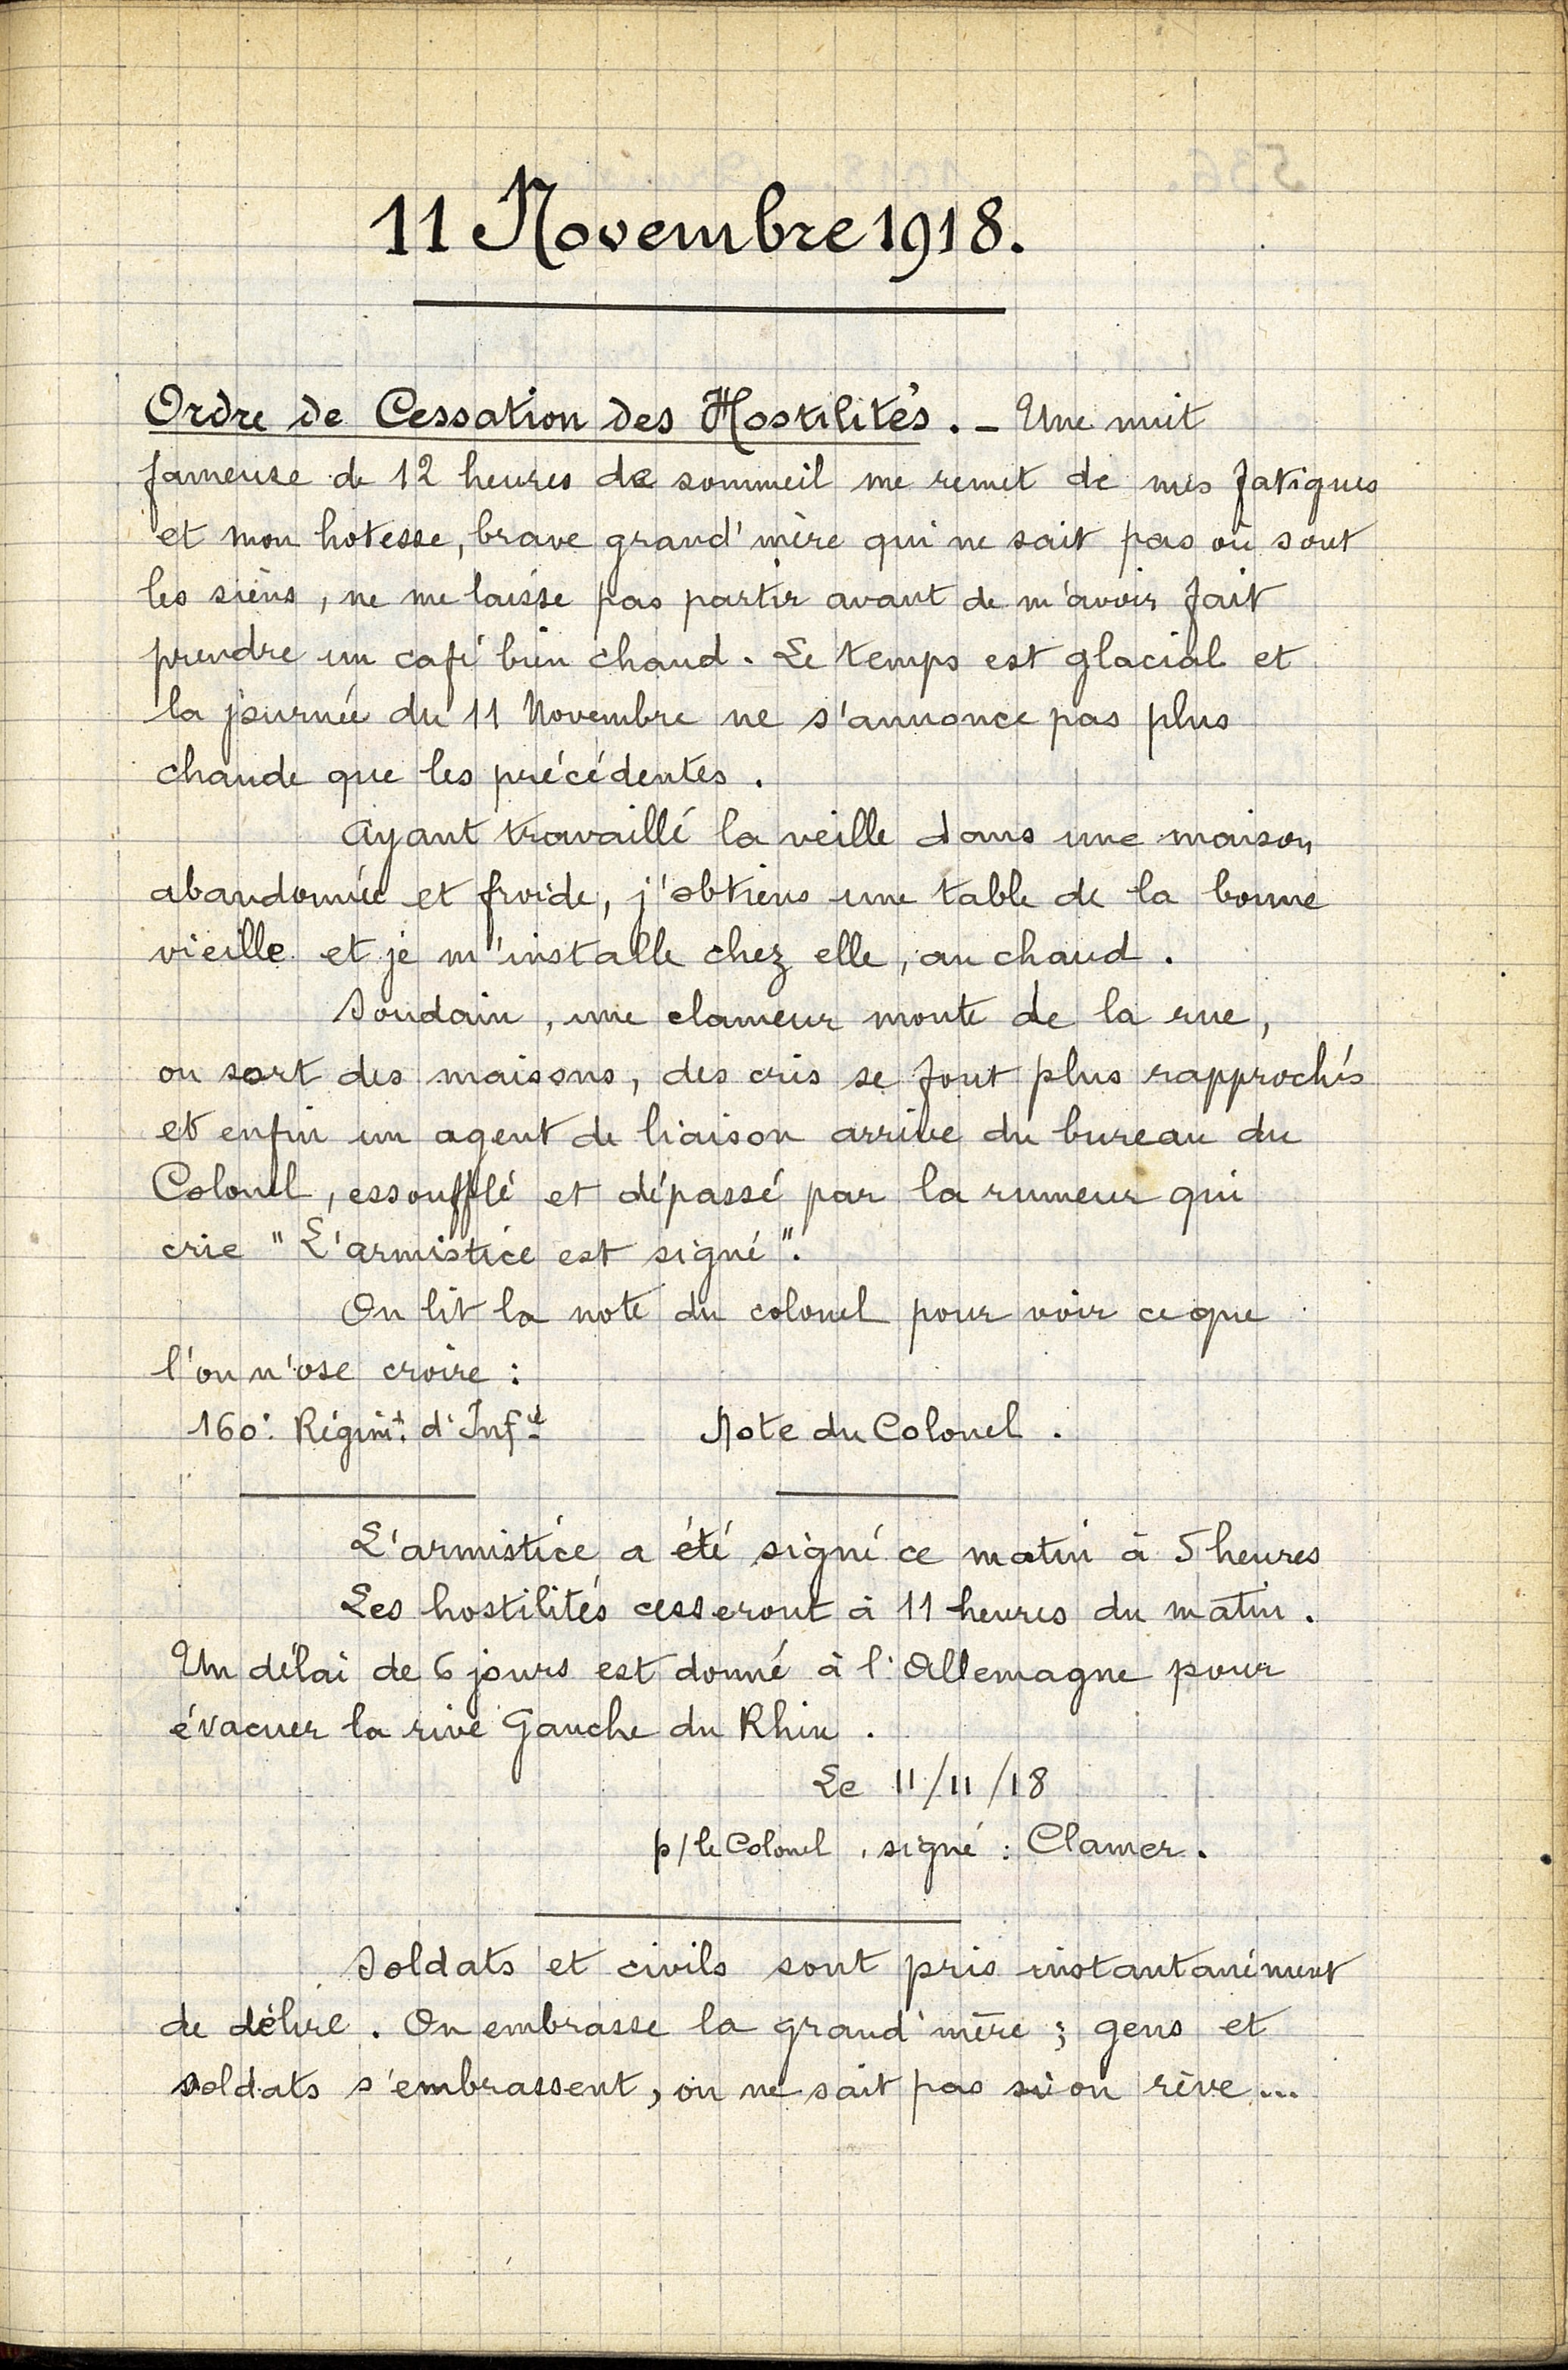 11 Novembre 1918.
Ordre de Cessation des Hostilités. – Une nuit
fameuse de 12 heures de sommeil me remet de mes fatigues
et mon hotesse, brave grand'mère qui ne sait pas où sont
les siens, ne me laisse pas partir avant de m'avoir fait
prendre un café bien chaud. Le temps est glacial et
la journée du 11 Novembre ne s'annonce pas plus
chaude que les précédentes.
Ayant travaillé la veille dans une maison
abandonnée et froide, j'obtiens une table de la bonne
vieille et je m'installe chez elle, au chaud.
Soudain, une clameur monte de la rue,
on sort des maisons, des cris se font plus rapprochés
et enfin un agent de liaison arrive du bureau du
Colonel, essoufflé et dépassé par la rumeur qui
crie "L'armistice est signé".
On lit la note du colonel pour voir ce que
l'on n'ose croire :
160e Régimt. d'Infie Note du Colonel.
L'armistice a été signé ce matin à 5 heures
Les hostilités cesseront à 11 heures du matin.
Un délai de 6 jours est donné à l'Allemagne pour
évacuer la rive Gauche du Rhin.
Le 11/11/18
p/le Colonel, signé : Clamer.
Soldats et civils sont pris instantanément
de délire. On embrasse la grand'mère ; gens et
soldats s'embrassent, on ne sait pas si on rêve...